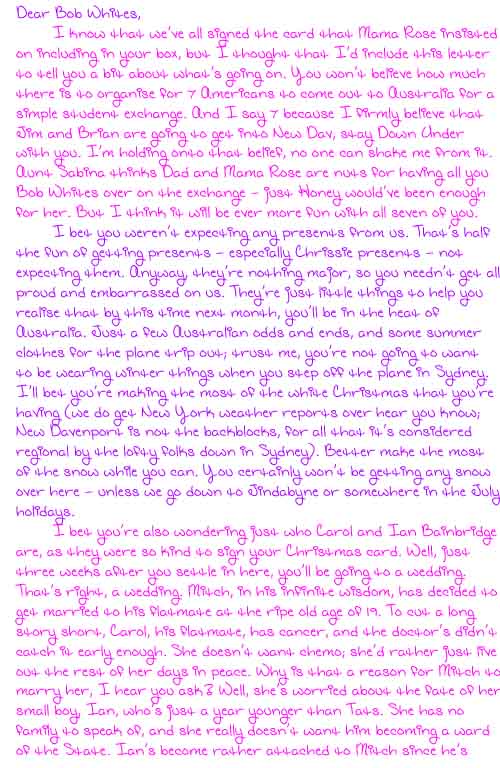 Dear Bob Whites,
I know that we've all signed the card that Mama Rose insisted
on including in your box, but I thought that I'd include this letter
to tell you a bit about what's going on. You won't believe how much
there is to organise for 7 Americans to come out to Australia for a
simple student exchange. And I say 7 because I firmly believe that
Jim and Brian are going to get into New Dav, stay Down Under
with you. I'm holding onto that belief, no one can shake me from it.
Aunt Sabina thinks Dad and Mama Rose are nuts for having all you
Bob Whites over on the exchange – just Honey would've been enough
for her. But I think it will be ever more fun with all seven of you.
I bet you weren't expecting any presents from us. That's half
the fun of getting presents – especially Chrissie presents – not
expecting them. Anyway, they're nothing major, so you needn't get all
proud and embarrassed on us. They're just little things to help you
realise that by this time next month, you'll be in the heat of
Australia. Just a few Australian odds and ends, and some summer
clothes for the plane trip out; trust me, you're not going to want
to be wearing winter things when you step off the plane in Sydney.
I'll bet you're making the most of the white Christmas that you're
having (we do get New York weather reports over hear you know;
New Davenport is not the backblocks, for all that it's considered
regional by the lofty folks down in Sydney). Better make the most
of the snow while you can. You certainly won't be getting any snow
over here – unless we go down to Jindabyne or somewhere in the July
holidays.
I bet you're also wondering just who Carol and Ian Bainbridge
are, as they were so kind to sign your Christmas card. Well, just
three weeks after you settle in here, you'll be going to a wedding.
That's right, a wedding. Mitch, in his infinite wisdom, has decided to
get married to his flatmate at the ripe old age of 19. To cut a long
story short, Carol, his flatmate, has cancer, and the doctor's didn't
catch it early enough. She doesn't want chemo; she'd rather just live
out the rest of her days in peace. Why is that a reason for Mitch to
marry her, I hear you ask? Well, she's worried about the fate of her
small boy, Ian, who's just a year younger than Tats. She has no
family to speak of, and she really doesn't want him becoming a ward
of the State. Ian's become rather attached to Mitch since he's